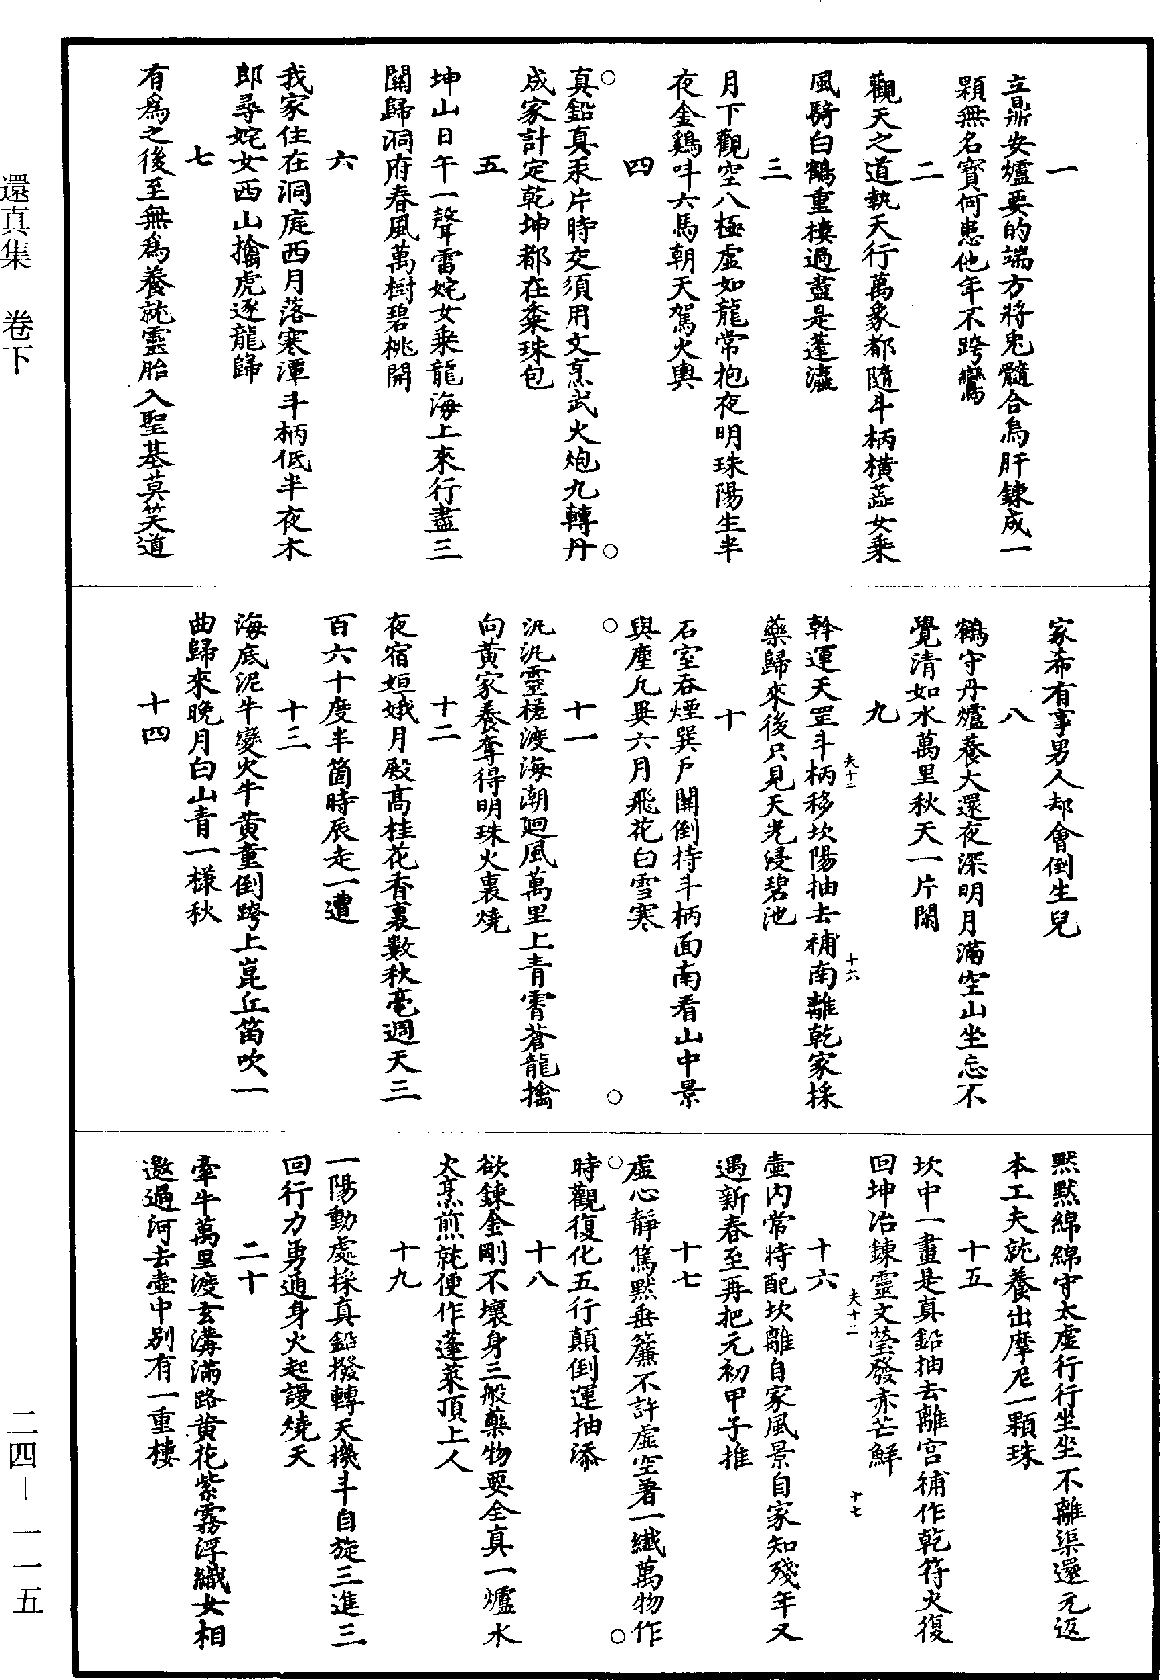 一
立鼎安爐要的端方將兎髓合烏肝鍊成一
顆無名寶何患他年不跨鸞
二
觀天之道執天行萬象都隨斗柄橫蕋女乘
風騎白鶴重樓過盡是蓬瀛
三
月下觀空八極虛如龍常抱夜明珠陽生半
夜金鷄呌六馬朝天駕火輿
四
真鉛真汞片時交須用文烹武火炮九轉丹
成家計定乾坤都在黍珠包
五
坤山日午一聲雷姹女乘龍海上來行盡三
關歸洞府春風萬樹碧桃開
六
我家住在洞庭西月落寒潭斗柄低半夜木
郎尋姹女西山擒虎逐龍歸
七
有爲之後至無爲養就靈胎入聖基莫笑道
家希有事男人却會倒生兒
八
鶴守丹爐養大還夜深明月滿空山坐忘不
覺清如水萬里秋天一片閑
九
斡運天罡斗柄移坎陽抽去補南離乾家採
藥歸來後只見天光浸碧池
十
石室吞煙巽戶關倒持斗柄面南看山中景
與塵凡異六月飛花白雪寒
十一
汎汎靈槎渡海潮廻風萬里上青霄蒼龍擒
向黃家養奪得明珠火裏燒
十二
夜宿姮娥月殿高桂花香裏數秋毫週天三
百六十度半箇時辰走一遭
十三
海底泥牛變火牛黃童倒跨上崑丘笛吹一
曲歸來晚月白山青一樣秋
十四
默默綿綿守太虛行行坐坐不離渠還元返
本工夫就養出摩尼一顆珠
十五
坎中一畫是真鉛抽去離宮補作乾符火復
回坤冶鍊靈文瑩發赤芒鮮
十六
壺內常特配坎離自家風景自家知殘年又
遇新春至再把元初甲子推
十七
虛心靜篤默垂簾不許虛空著一纖萬物作
時觀復化五行顛倒運抽添
十八
欲鍊金剛不壞身三般藥物要全真一爐水
火烹煎就便作蓬萊頂上人
十九
一陽動處採真鉛撥轉天機斗自旋三進三
回行力勇通身火起謾燒天
二十
牽牛萬里渡玄溝滿路黃花紫霧浮織女相
邀過河去壺中別有一重樓
夫十二
十六
夫十二
十七
還真集 卷下
二四—一一五